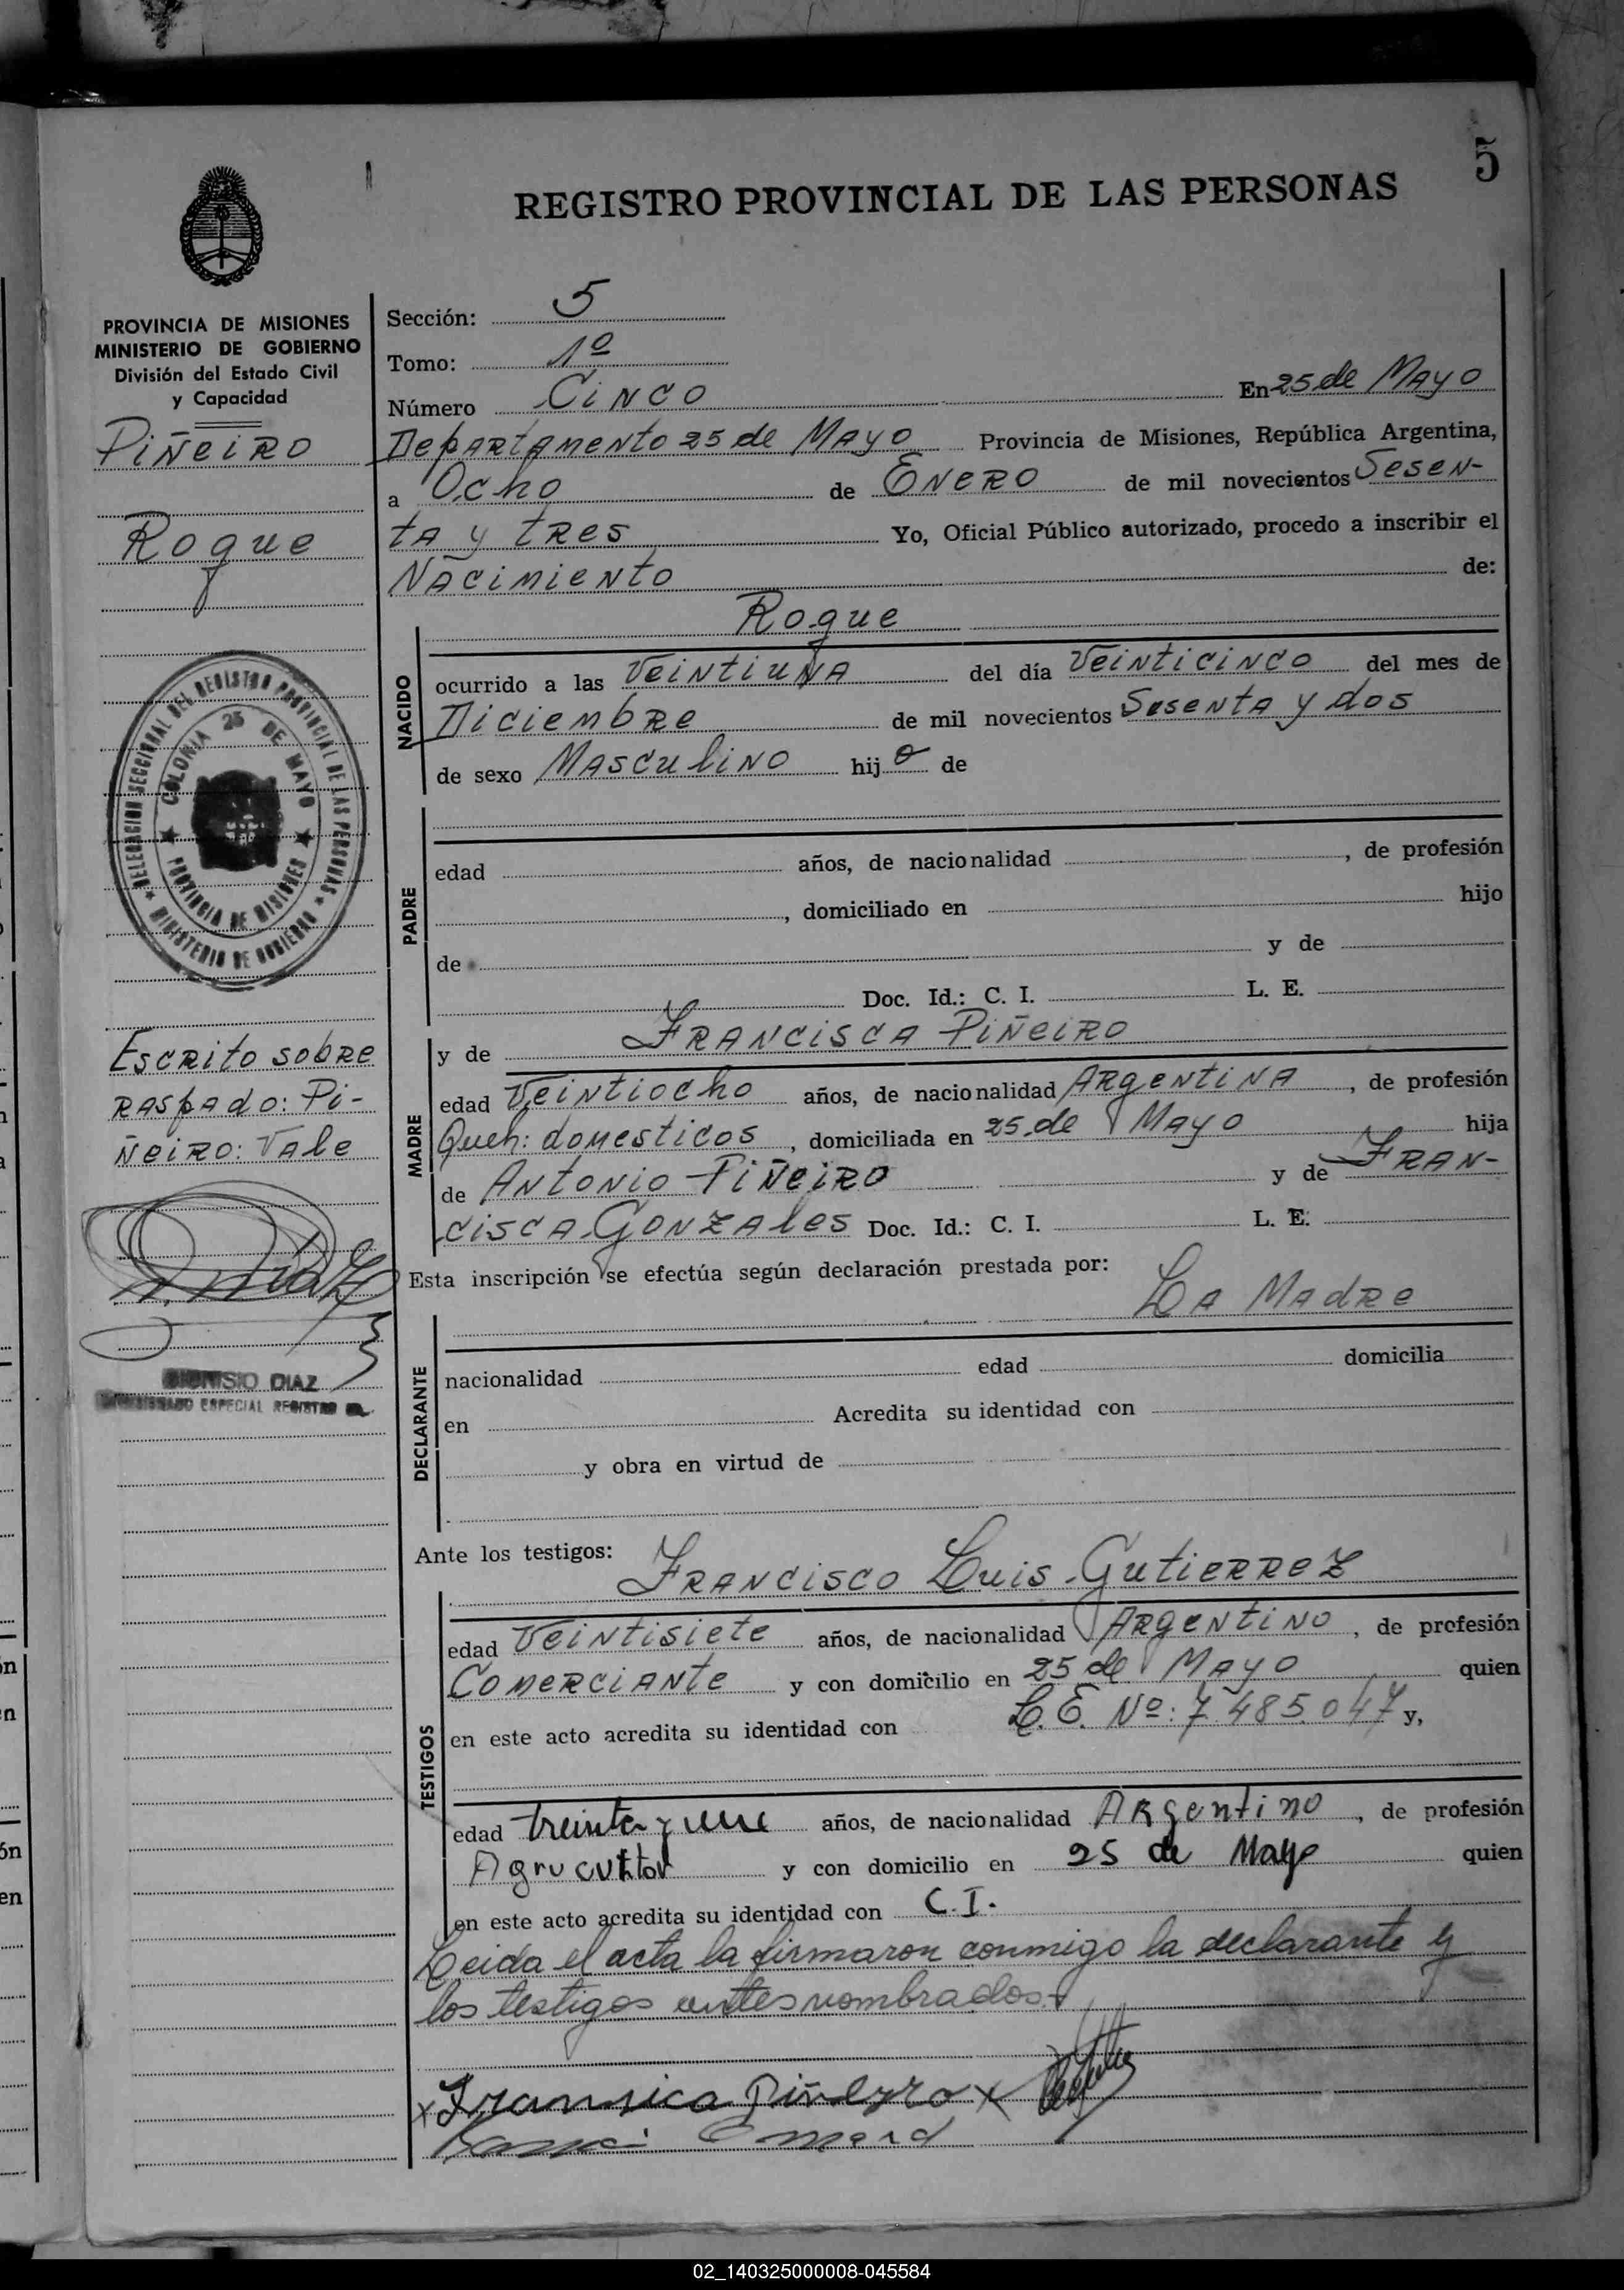 5
REGISTRO PROVINCIAL DE LAS PERSONAS
PROVINCIA DE MISIONES
MINISTERIO DE GOBIERNO
División del Estado Civil
y Capacidad
Piñeiro
Roque
DELEGACION SECCIONAL DEL REGISTRO PROVINCIAL DE LAS PERSONAS
MINISTERIO DE GOBIERNO
COLONIA 25 DE MAYO
PROVINCIA DE MISIONES
Escrito sobre
raspado: Pi-
ñeiro: Vale
DIONISIO DIAZ
ESPECIAL REGISTRO
Sección: 5
Tomo: 1º
Número Cinco En 25 de Mayo
Departamento 25 de Mayo Provincia de Misiones, República Argentina,
a Ocho de Enero de mil novecientos Sesen-
ta y tres Yo, Oficial Público autorizado, procedo a inscribir el
Nacimiento de:
Roque
NACIDO
ocurrido a las Veintiuna del día Veinticinco del mes de
Diciembre de mil novecientos Sesenta y dos
de sexo Masculino hijo de
PADRE
edad años, de nacionalidad , de profesión
, domiciliado en hijo
de y de
Doc. Id.: C. I. L. E.
MADRE
y de Francisca Piñeiro
edad Veintiocho años, de nacionalidad Argentina , de profesión
Queh: domesticos , domiciliada en 25 de Mayo hija
de Antonio Piñeiro y de Fran-
cisca Gonzales Doc. Id.: C. I. L. E.
Esta inscripción se efectúa según declaración prestada por:
La Madre
DECLARANTE
nacionalidad edad domicilia
en Acredita su identidad con
y obra en virtud de
Ante los testigos: Francisco Luis Gutierrez
TESTIGOS
edad Veintisiete años, de nacionalidad Argentino , de profesión
Comerciante y con domicilio en 25 de Mayo quien
en este acto acredita su identidad con L.E. Nº: 7.485.047 y,
edad treinta y une años, de nacionalidad Argentino , de profesión
Agrucultor y con domicilio en 25 de Mayo quien
en este acto acredita su identidad con C.I.
Leida el acta la firmaron conmigo la declarante y
los testigos antes nombrados
x Fransica Piñeyro x
02_140325000008-045584